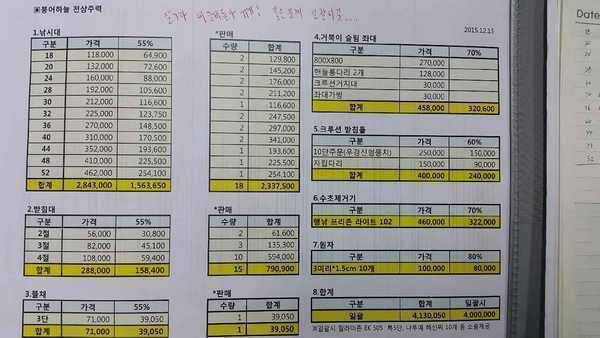 ▣붕어하늘 전상주력
2015.12.15
1.낚시대
구분 가격 55%
18 118,000 64,900
20 132,000 72,600
24 160,000 88,000
28 192,000 105,600
30 212,000 116,600
32 225,000 123,750
36 270,000 148,500
40 310,000 170,500
44 352,000 193,600
48 410,000 225,500
52 462,000 254,100
합계 2,843,000 1,563,650
*판매
수량 합계
2 129,800
2 145,200
2 176,000
2 211,200
1 116,600
2 247,500
2 297,000
2 341,000
1 193,600
1 225,500
1 254,100
18 2,337,500
2.받침대
구분 가격 55%
2절 56,000 30,800
3절 82,000 45,100
4절 108,000 59,400
합계 288,000 158,400
*판매
수량 합계
2 61,600
3 135,300
10 594,000
15 790,900
3.뜰채
구분 가격 55%
3단 71,000 39,050
합계 71,000 39,050
*판매
수량 합계
1 39,050
1 39,050
4.거북이 슬림 좌대
구분 가격 70%
800X800 270,000
한들롱다리 2개 128,000
크루션거치대 30,000
좌대가방 30,000
합계 458,000 320,600
5.크루션 받침틀
구분 가격 60%
10단주문(우경진영뭉치) 250,000 150,000
자립다리 150,000 90,000
합계 400,000 240,000
6.수초제거기
구분 가격 70%
행낚 프리즌 라이트 102 460,000 322,000
7.원자
구분 가격 80%
3미리*1.5cm 10개 100,000 80,000
8.합계
구분 합계 일괄시
일괄 4,130,050 4,000,000
Date